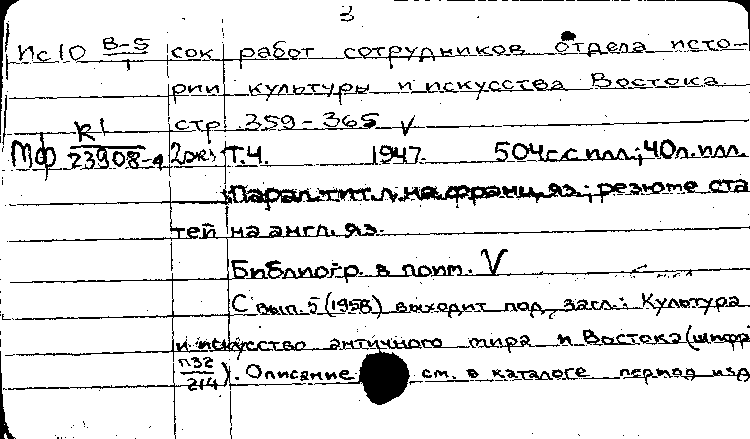 3
Пс10 В-5/1 сок работ сотрудников отдела исто-
рии культуры и искусства Востока
стр. 359-365 V
МФ К1/23908-а 2экз Т.4. 1947. 504с.с илл.; 40л.илл.
Парал.тит.л. на франц.яз.; резюме ста
тей на англ. яз.
Библиогр. в прим. V
С вып. 5 (1958) выходит под загл.: Культура
и искусство античного мира и Востока (шифр
П32/214). Описание см. в каталоге период изд